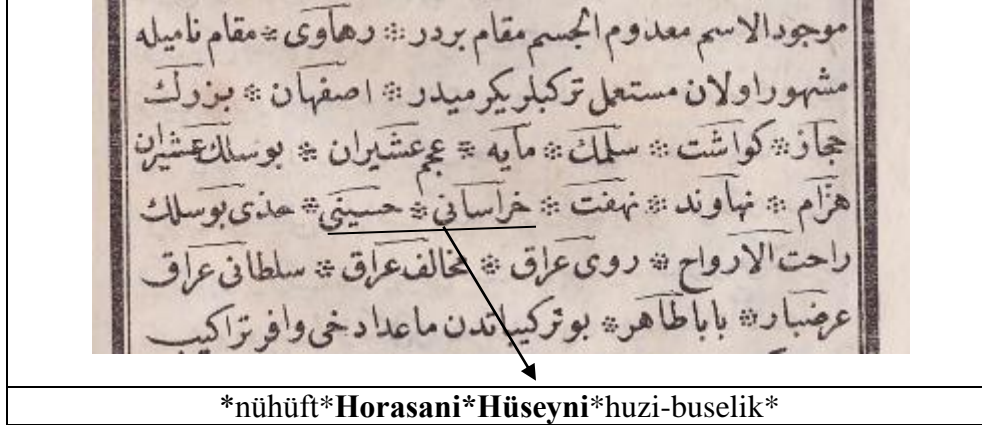 موجود الاسم معدوم الجسم مقام بردر ፨ رهاوى ፨ مقام ناميله
مشهور اولان مستعمل تركيلر يكرميدر ፨ اصفهان ፨ بزرك
حجاز ፨ كواشت ፨ سلمك ፨ مايه ፨ عجم عشيران ፨ بوسلك عشيران
هزام ፨ نهاوند ፨ نهفت ፨ خراسانى ፨ حسينى ፨ حذى بوسلك
راحت الارواح ፨ روى عراق ፨ مخالف عراق ፨ سلطانى عراق
عرضبار ፨ بابا طاهر ፨ بو تركيباتدن ماعدا دخى وافر تراكيب
*nühüft*Horasani*Hüseyni*huzi-buselik*